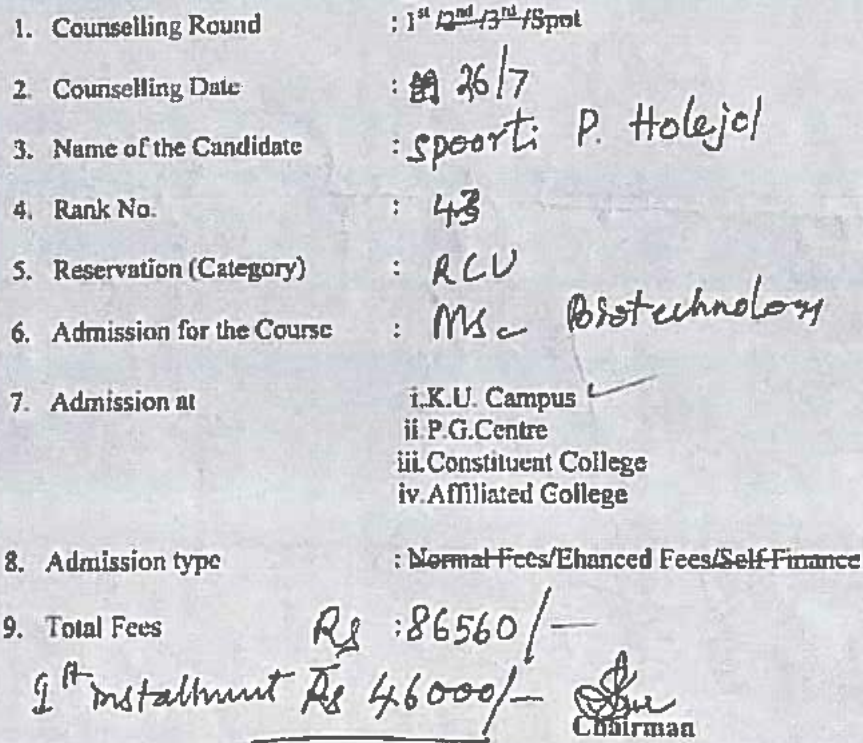 1. Counselling Round : 1st /2nd /3rd /Spot
2. Counselling Date : 26/7
3. Name of the Candidate : Spoorti P. Holejol
4. Rank No. : 43
5. Reservation (Category) : RCU
6. Admission for the Course : MSc Biotechnology
7. Admission at i.K.U. Campus ✓
ii.P.G.Centre
iii.Constituent College
iv.Affiliated College
8. Admission type : Normal Fees/Ehanced Fees/Self Finance
9. Total Fees Rs :86560/-
1st installment Rs 46000/-
Chairman